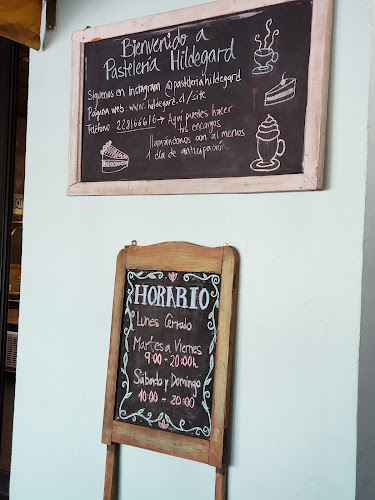 Bienvenido a
Pastelería Hildegard
Síguenos en Instagram @pasteleriahildegard
Página web: www.hildegard.cl/site
Teléfono: 228166616 → Aquí puedes hacer
tus encargos
llamándonos con al menos
1 día de anticipación.
HORARIO
Lunes Cerrado
Martes a Viernes
9:00 - 20:00h
Sábado y Domingo
10:00 - 20:00